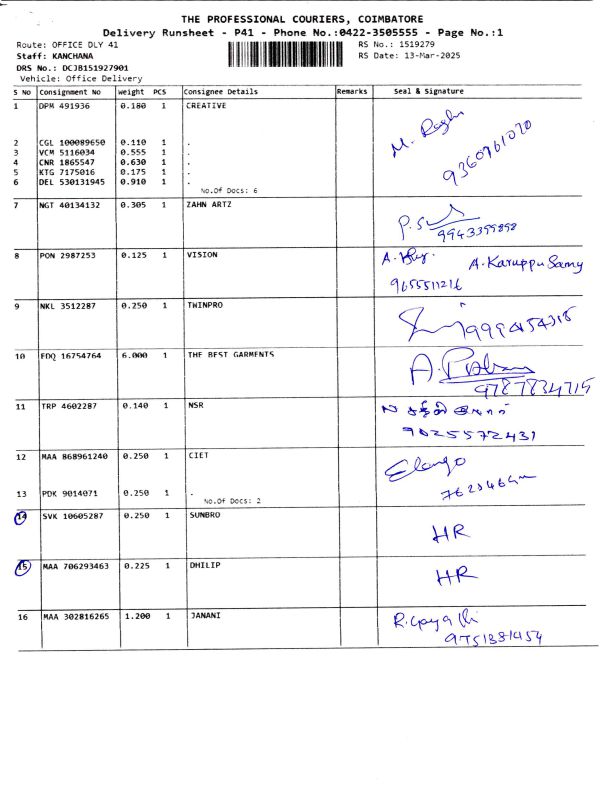 THE PROFESSIONAL COURIERS, COIMBATORE
Delivery Runsheet - P41 - Phone No.:0422-3505555 - Page No.:1
Route: OFFICE DLY 41 RS No.: 1519279
Staff: KANCHANA RS Date: 13-Mar-2025
DRS No.: DCJB151927901
Vehicle: Office Delivery
S No Consignment No Weight PCS Consignee Details Remarks Seal & Signature
1 DPM 491936 0.180 1 CREATIVE
2 CGL 100089650 0.110 1 .
3 VCM 5116034 0.555 1 .
4 CNR 1865547 0.630 1 .
5 KTG 7175016 0.175 1 .
6 DEL 530131945 0.910 1 .
No.Of Docs: 6
M. Raghu
9360961070
7 NGT 40134132 0.305 1 ZAHN ARTZ
9943399898
8 PON 2987253 0.125 1 VISION
A. Karuppu Samy
9655511216
9 NKL 3512287 0.250 1 TWINPRO
10 EDQ 16754764 6.000 1 THE BEST GARMENTS
9787834715
11 TRP 4602287 0.140 1 NSR
9025572431
12 MAA 868961240 0.250 1 CIET
Elango
13 PDK 9014071 0.250 1 .
No.Of Docs: 2
14 SVK 10605287 0.250 1 SUNBRO
HR
15 MAA 706293463 0.225 1 DHILIP
HR
16 MAA 302816265 1.200 1 JANANI
9751381454